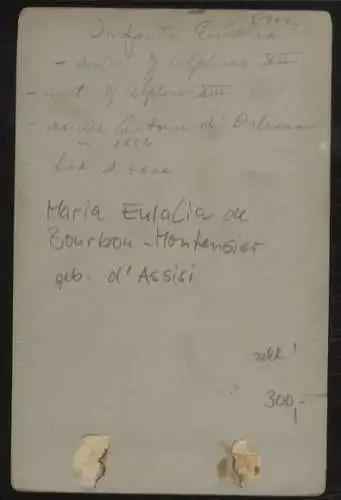 Infanta Eulalia
- sister of Alphonso XII
- aunt of Alphonso XIII
- married Antoine d'Orleans
1886
had 2 sons
Maria Eulalia de
Bourbon-Montensier
geb. d'Assisi
300,-